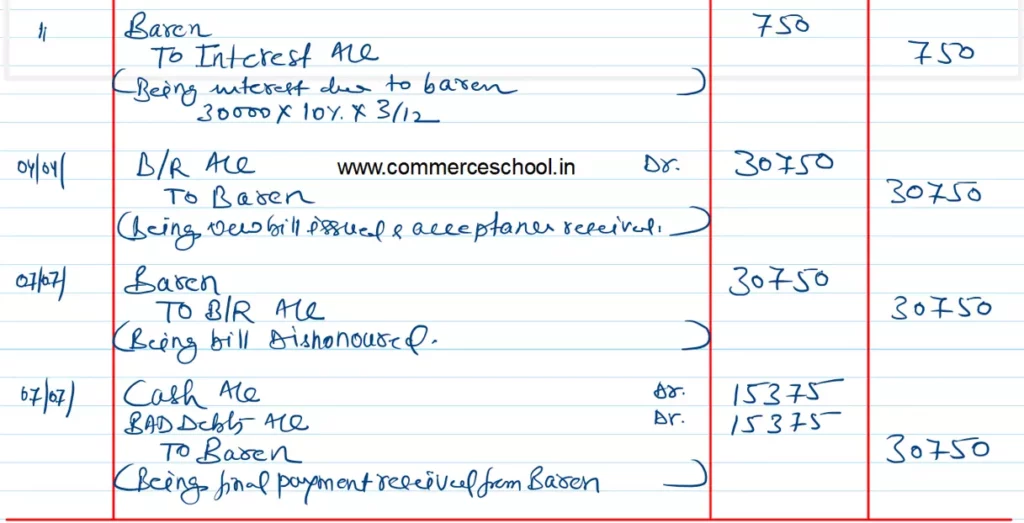 11 Baren 750
To Interest A/c 750
(Being interest due to baren
30000 X 10%. X 3/12
04/04/ B/R A/c www.commerceschool.in Dr. 30750
To Baren 30750
(Being new bill issued & acceptance received.)
07/07/ Baren 30750
To B/R A/c 30750
(Being bill Dishonoured.)
07/07/ Cash A/c Dr. 15375
BAD Debts A/c Dr. 15375
To Baren 30750
(Being final payment received from Baren)